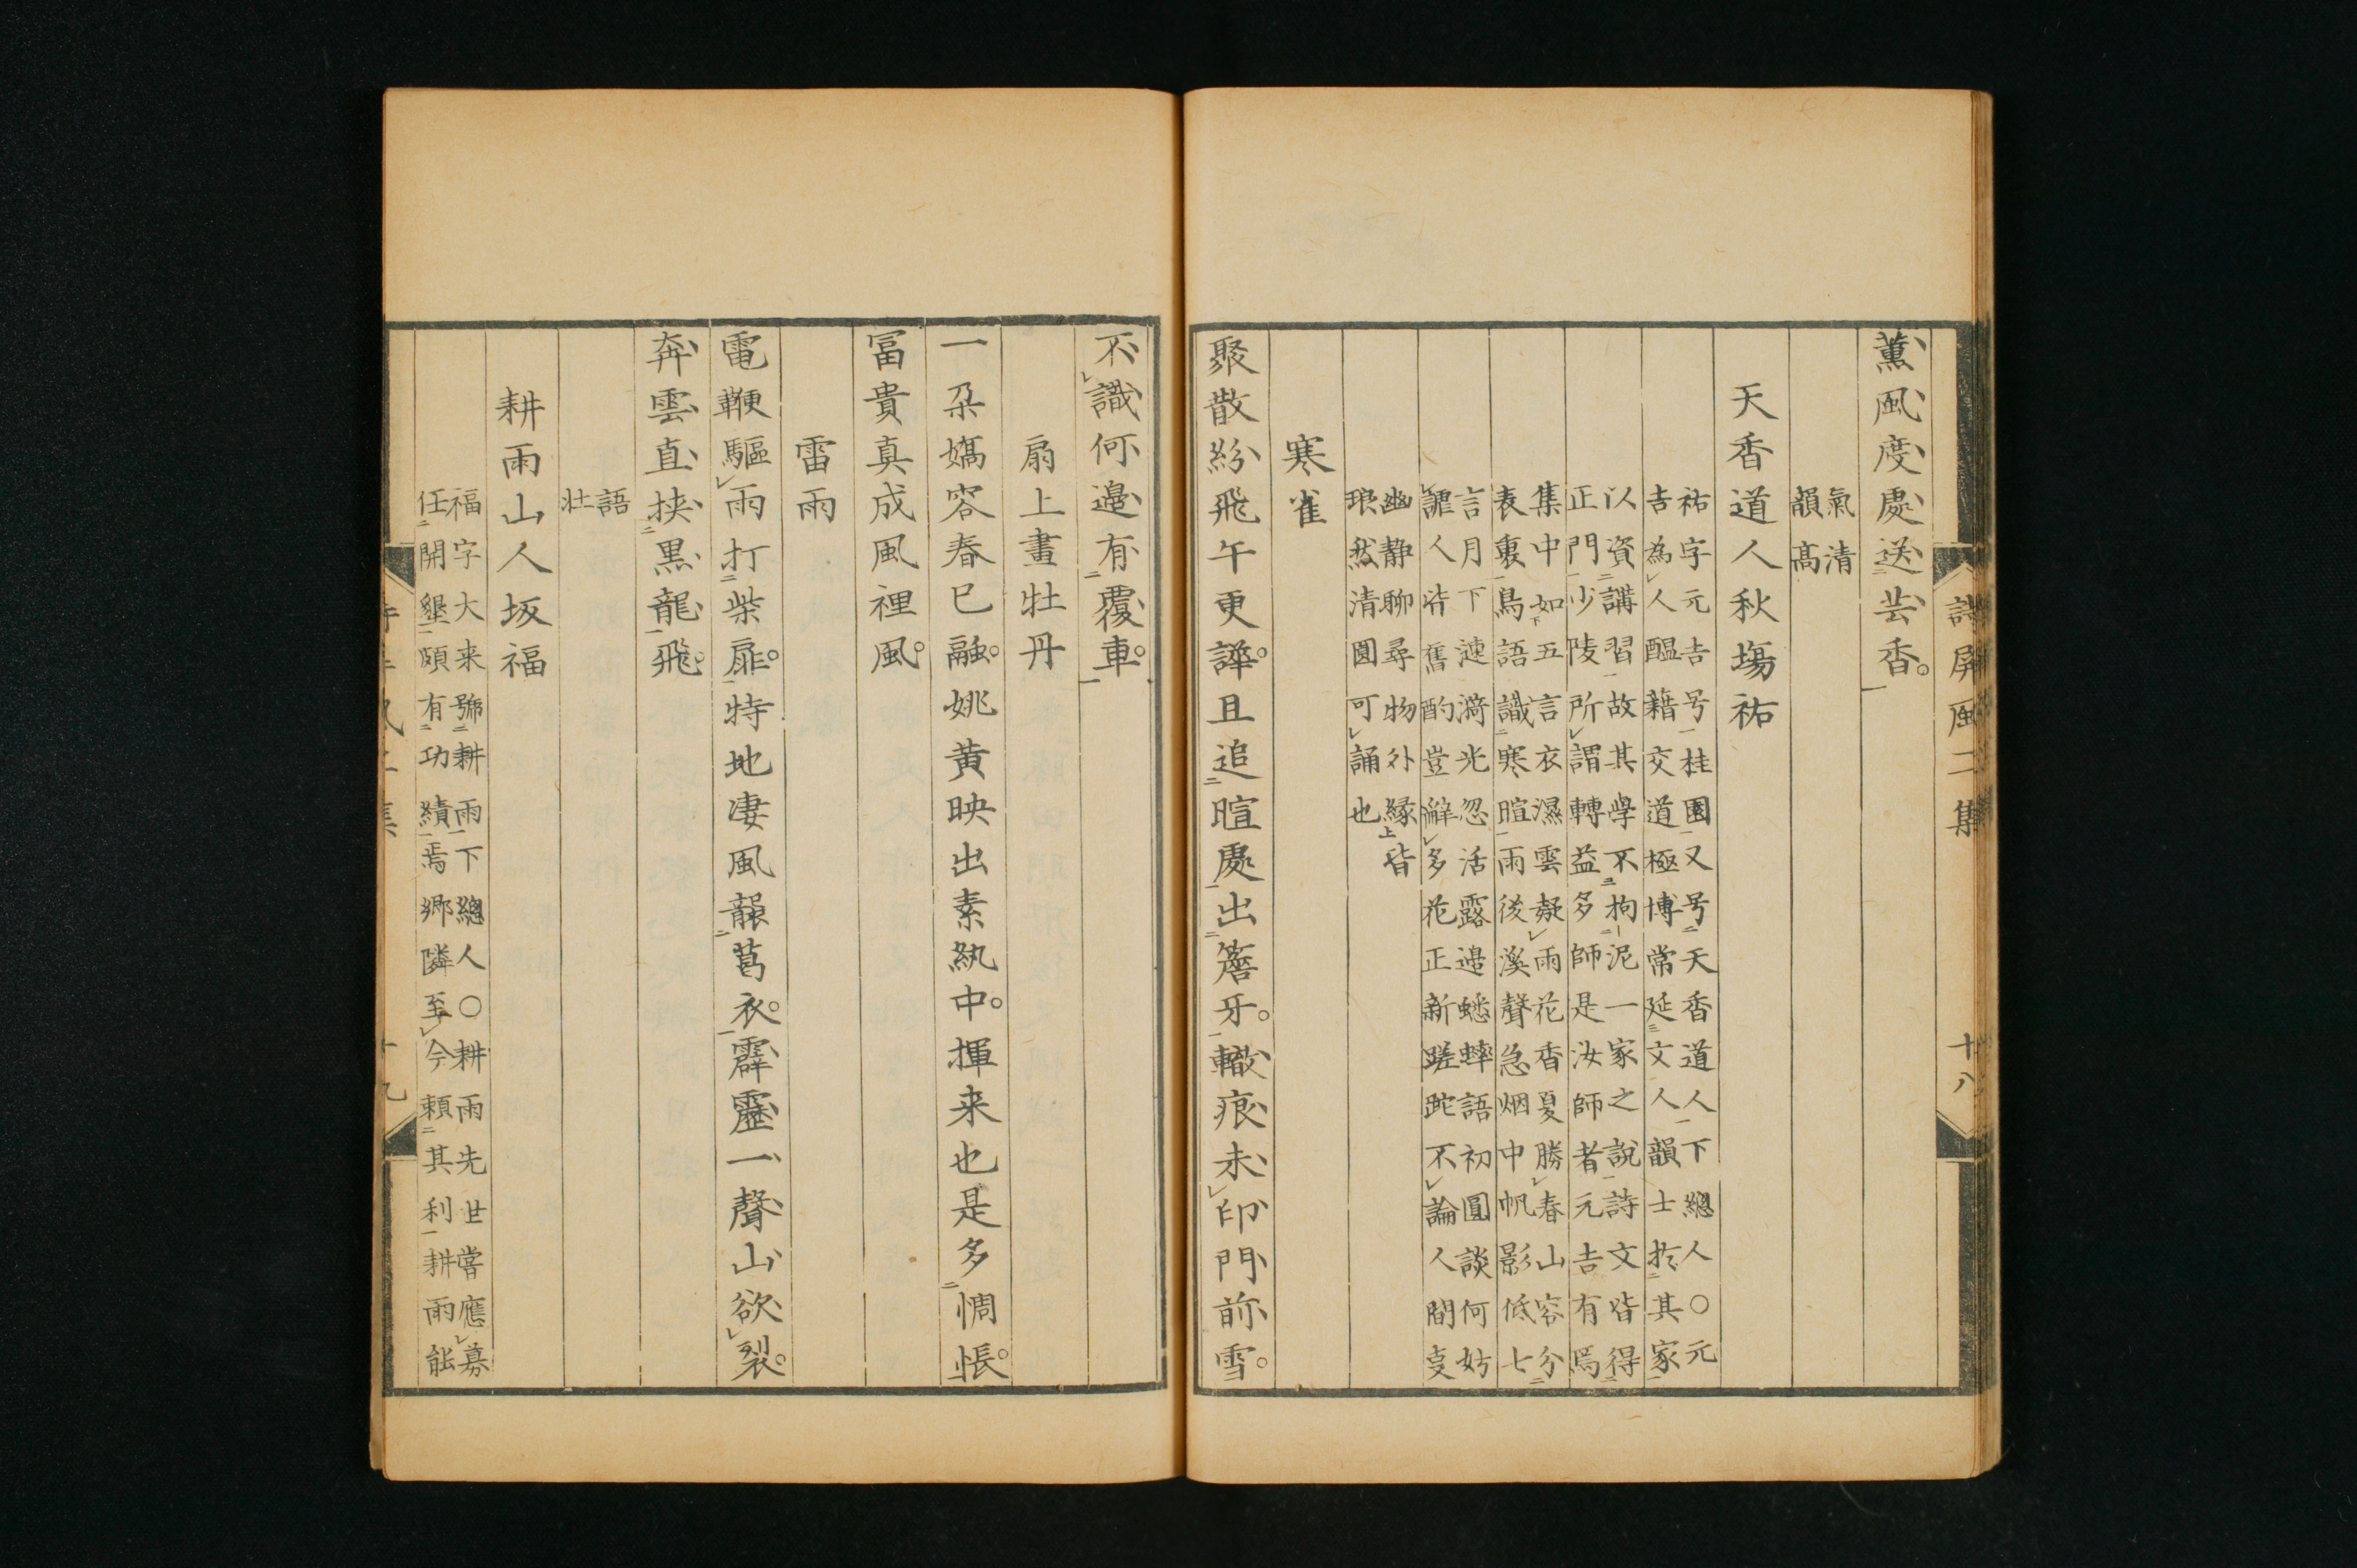 詩屏風二集
十八
薫風度處送芸香。
氣清
韻高
天香道人秋塲祐
祐字元吉号桂園又号天香道人下總人○元
吉為人醞藉交道極博常延文人韻士於其家
以資講習故其學不拘泥一家之說詩文皆得
正門少陵所謂轉益多師是汝師者元吉有焉
集中如五言衣濕雲凝雨花香夏勝春山容分
表裏鳥語識寒暄雨後溪聲急烟中帆影低七
言月下漣漪光忽活露邉蟋蟀語初圓談何妨
謔人皆舊酌豈辭多花正新蹉跎不論人間
幽靜聊尋物外縁皆
琅然清圓可誦也
寒雀
聚散紛飛午更譁。且追暄處出簷牙。轍痕未印門前雪。
不識何邉有覆車。
扇上畫牡丹
一朶嬌容春已融。姚黄映出素紈中。揮来也是多惆悵。
冨貴真成風裡風。
雷雨
電鞭驅雨打柴扉。特地凄風龍葛衣。霹靂一聲山欲裂。
奔雲直挟黒龍飛。
語
壮
耕雨山人坂福
福字大来號耕雨下總人○耕雨先世嘗應募
任開墾頗有功績焉郷隣至今頼其利耕雨能